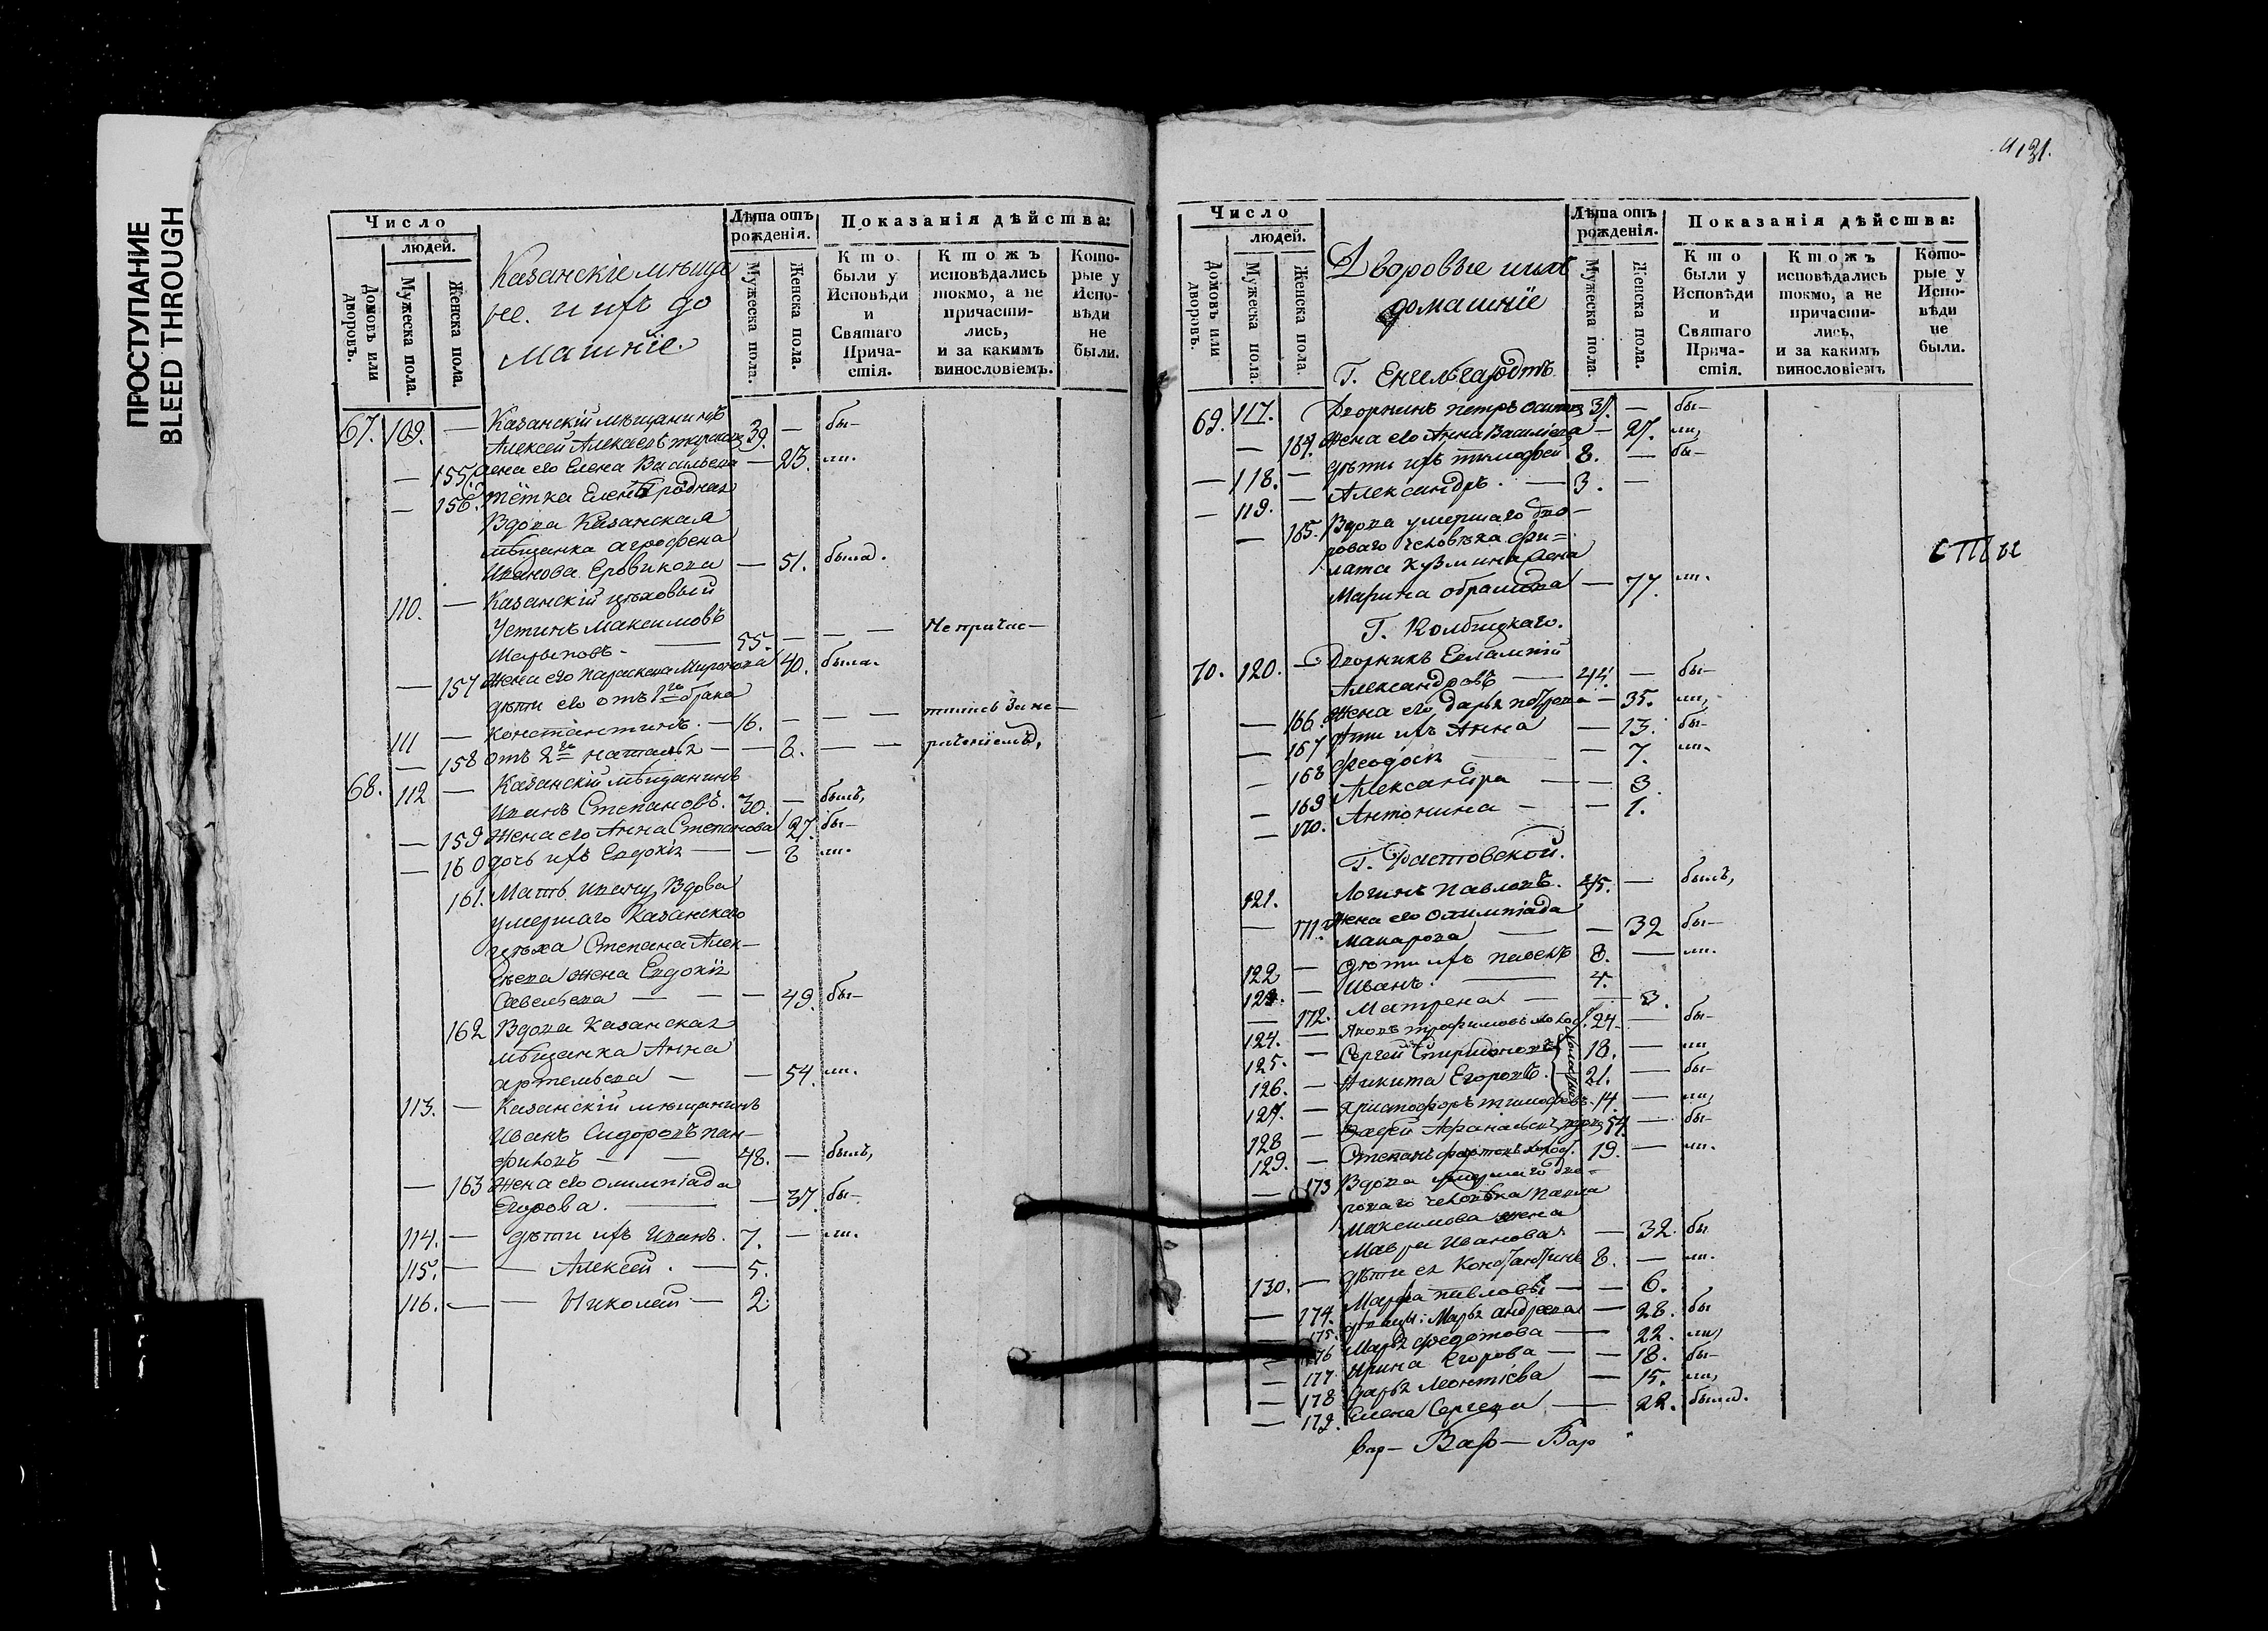 ПРОСТУПАНИЕ
BLEED THROUGH
Число
людей.
Домовъ или дворовъ.
Мужеска пола.
Женска пола.
Казанскіе мѣща
не. и ихъ до
машніе.
Лѣта отъ рожденія.
Мужеска пола.
Женска пола.
Показанія дѣйства:
Кто были у Исповѣди и Святаго Прича-стія.
Ктожъ исповѣдались токмо, а не причасти-лись, и за какимъ винословіемъ.
Кото-рые у Испо-вѣди не были.
67. 109. — Казанскій мѣщанинъ
Алексей Алексеевъ 39. — бы-
— 155. Жена его Елена Васильева — 23. ли.
— 156. тётка Елены родная
Вдова Казанская
мѣщанка Агрофена
Иванова — 51. была.
110. — Казанскій цѣховый
Устинъ Максимовъ
Шарыповъ — 55. — — — Не причас-
— 157 Жена его Параскева Миронова 40. была.
дѣти его отъ 1го брака
111 — Константинъ. — 16. — — — тились за не-
— 158 отъ 2го Наталья — — 8. — — рачениемъ,
68. 112 — Казанскій мѣщанинъ
Иванъ Степановъ. 30. — былъ,
— 159 Жена его Анна Степанова 27. бы-
— 160 дочь ихъ Евдокія — — 8 ли.
161. Мать Ивану, Вдова
умершаго Казанскаго
цѣха Степана Алек-
сѣева жена Евдокія
Савельева — — — 49. бы-
162 Вдова Казанская
мѣщанка Анна
Артемьева — — 54. ли.
113. — Казанскій мѣщанинъ
Иванъ Сидоровъ пан-
филовъ — — 48. — былъ,
— 163 Жена его Олимпіада
Егорова. — — 37. бы-
114. — дѣти ихъ Иванъ. 7. — ли.
115. — — Алексей. — 5.
116. — — Николай — 2
131.
Число
людей.
Домовъ или дворовъ.
Мужеска пола.
Женска пола.
Дворовые и ихъ
домашніе
Г. Енгельгардтъ
Лѣта отъ рожденія.
Мужеска пола.
Женска пола.
Показанія дѣйства:
Кто были у Исповѣди и Святаго Прича-стія.
Ктожъ исповѣдались токмо, а не причасти-лись, и за какимъ винословіемъ
Кото-рые у Испо-вѣди не были.
69. 117. Дворникъ Петръ Осиповъ 31. — бы-
— 164. Жена его Анна Васильева — 27. ли,
— 118. — дѣти ихъ Тимофей 8. — бы-
— 119. — Александръ. — 3. —
— 165. Вдова умершаго дво-
роваго человѣка Фи-
лата Кузмина жена
Марина Обрамова — 77. ли.
стъы
Г. Колбецкаго.
70. 120. — Дворникъ Евлампій
Александровъ — 44. — бы-
— 166. Жена его Дарья Петрова — 35. ли,
— 167 дѣти ихъ Анна — 13. бы-
— 168 Феодосія — 7. ли.
— 169 Александра — — 3.
— 170. Антонина — — 1.
Г. Растовской.
121. Логинъ Павловъ. 45. — былъ,
— 171. Жена его Олимпіада
Макарова — — 32 бы-
122 — дѣти ихъ Павелъ 8. — ли.
123. — Иванъ. — 4.
— 172. Матрена — — 3.
124. — Яковъ Трофимовъ холос. 24. — бы-
125. — Сергей Спиридоновъ 18. — ли
126. — Никита Егоровъ. 21. — бы-
127. — Христофоръ Тимофѣевъ. 14. — ли,
128 — 54 — бы-
129. — Степанъ холос. 19. — ли.
— 173 Вдова умершаго дво-
роваго человѣка Павла
Максимова жена
Мавра Иванова — 32. бы
130. — дѣти ея Константинъ 8. — ли.
— 174. Марфа Павлова — — 6.
175. дѣвицы: Марья Андреева — 28. бы
— 176 Марья Федотова — — 22. ли,
— 177 Ирина Егорова — — 18. бы-
— 178 Дарья Леонтіева — 15. ли,
— 179. Елена Сергеева — — 22. была.
Вар — Вар — Вар